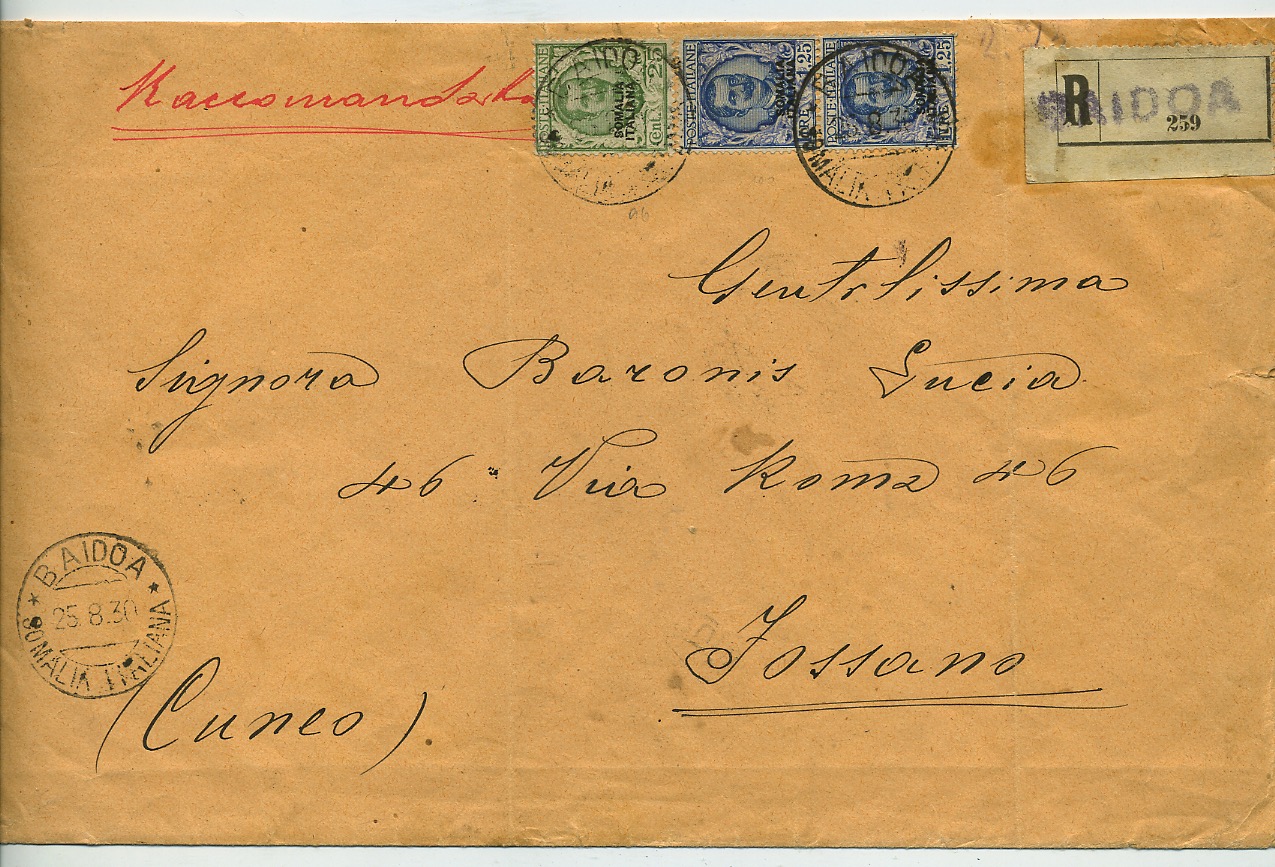 Raccomandata
POSTE ITALIANE
Cent. 25
SOMALIA
ITALIANA
POSTE ITALIANE
LIRE 1,25
SOMALIA
ITALIANA
POSTE ITALIANE
LIRE 1,25
SOMALIA
ITALIANA
BAIDOA
SOMALIA ITALIANA
BAIDOA
SOMALIA ITALIANA
R
BAIDOA
259
96
Gentilissima
Signora Baronis Lucia
46 Via Roma 46
Fossano
(Cuneo)
BAIDOA
25.8.30
SOMALIA ITALIANA